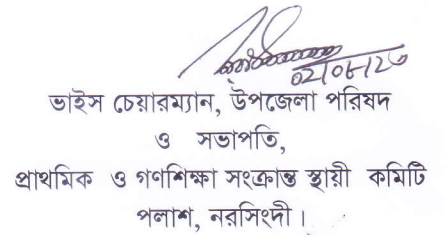 ভাইস চেয়ারম্যান, উপজেলা পরিষদ
ও সভাপতি,
প্রাথমিক ও গণশিক্ষা সংক্রান্ত স্থায়ী কমিটি
পলাশ, নরসিংদী।